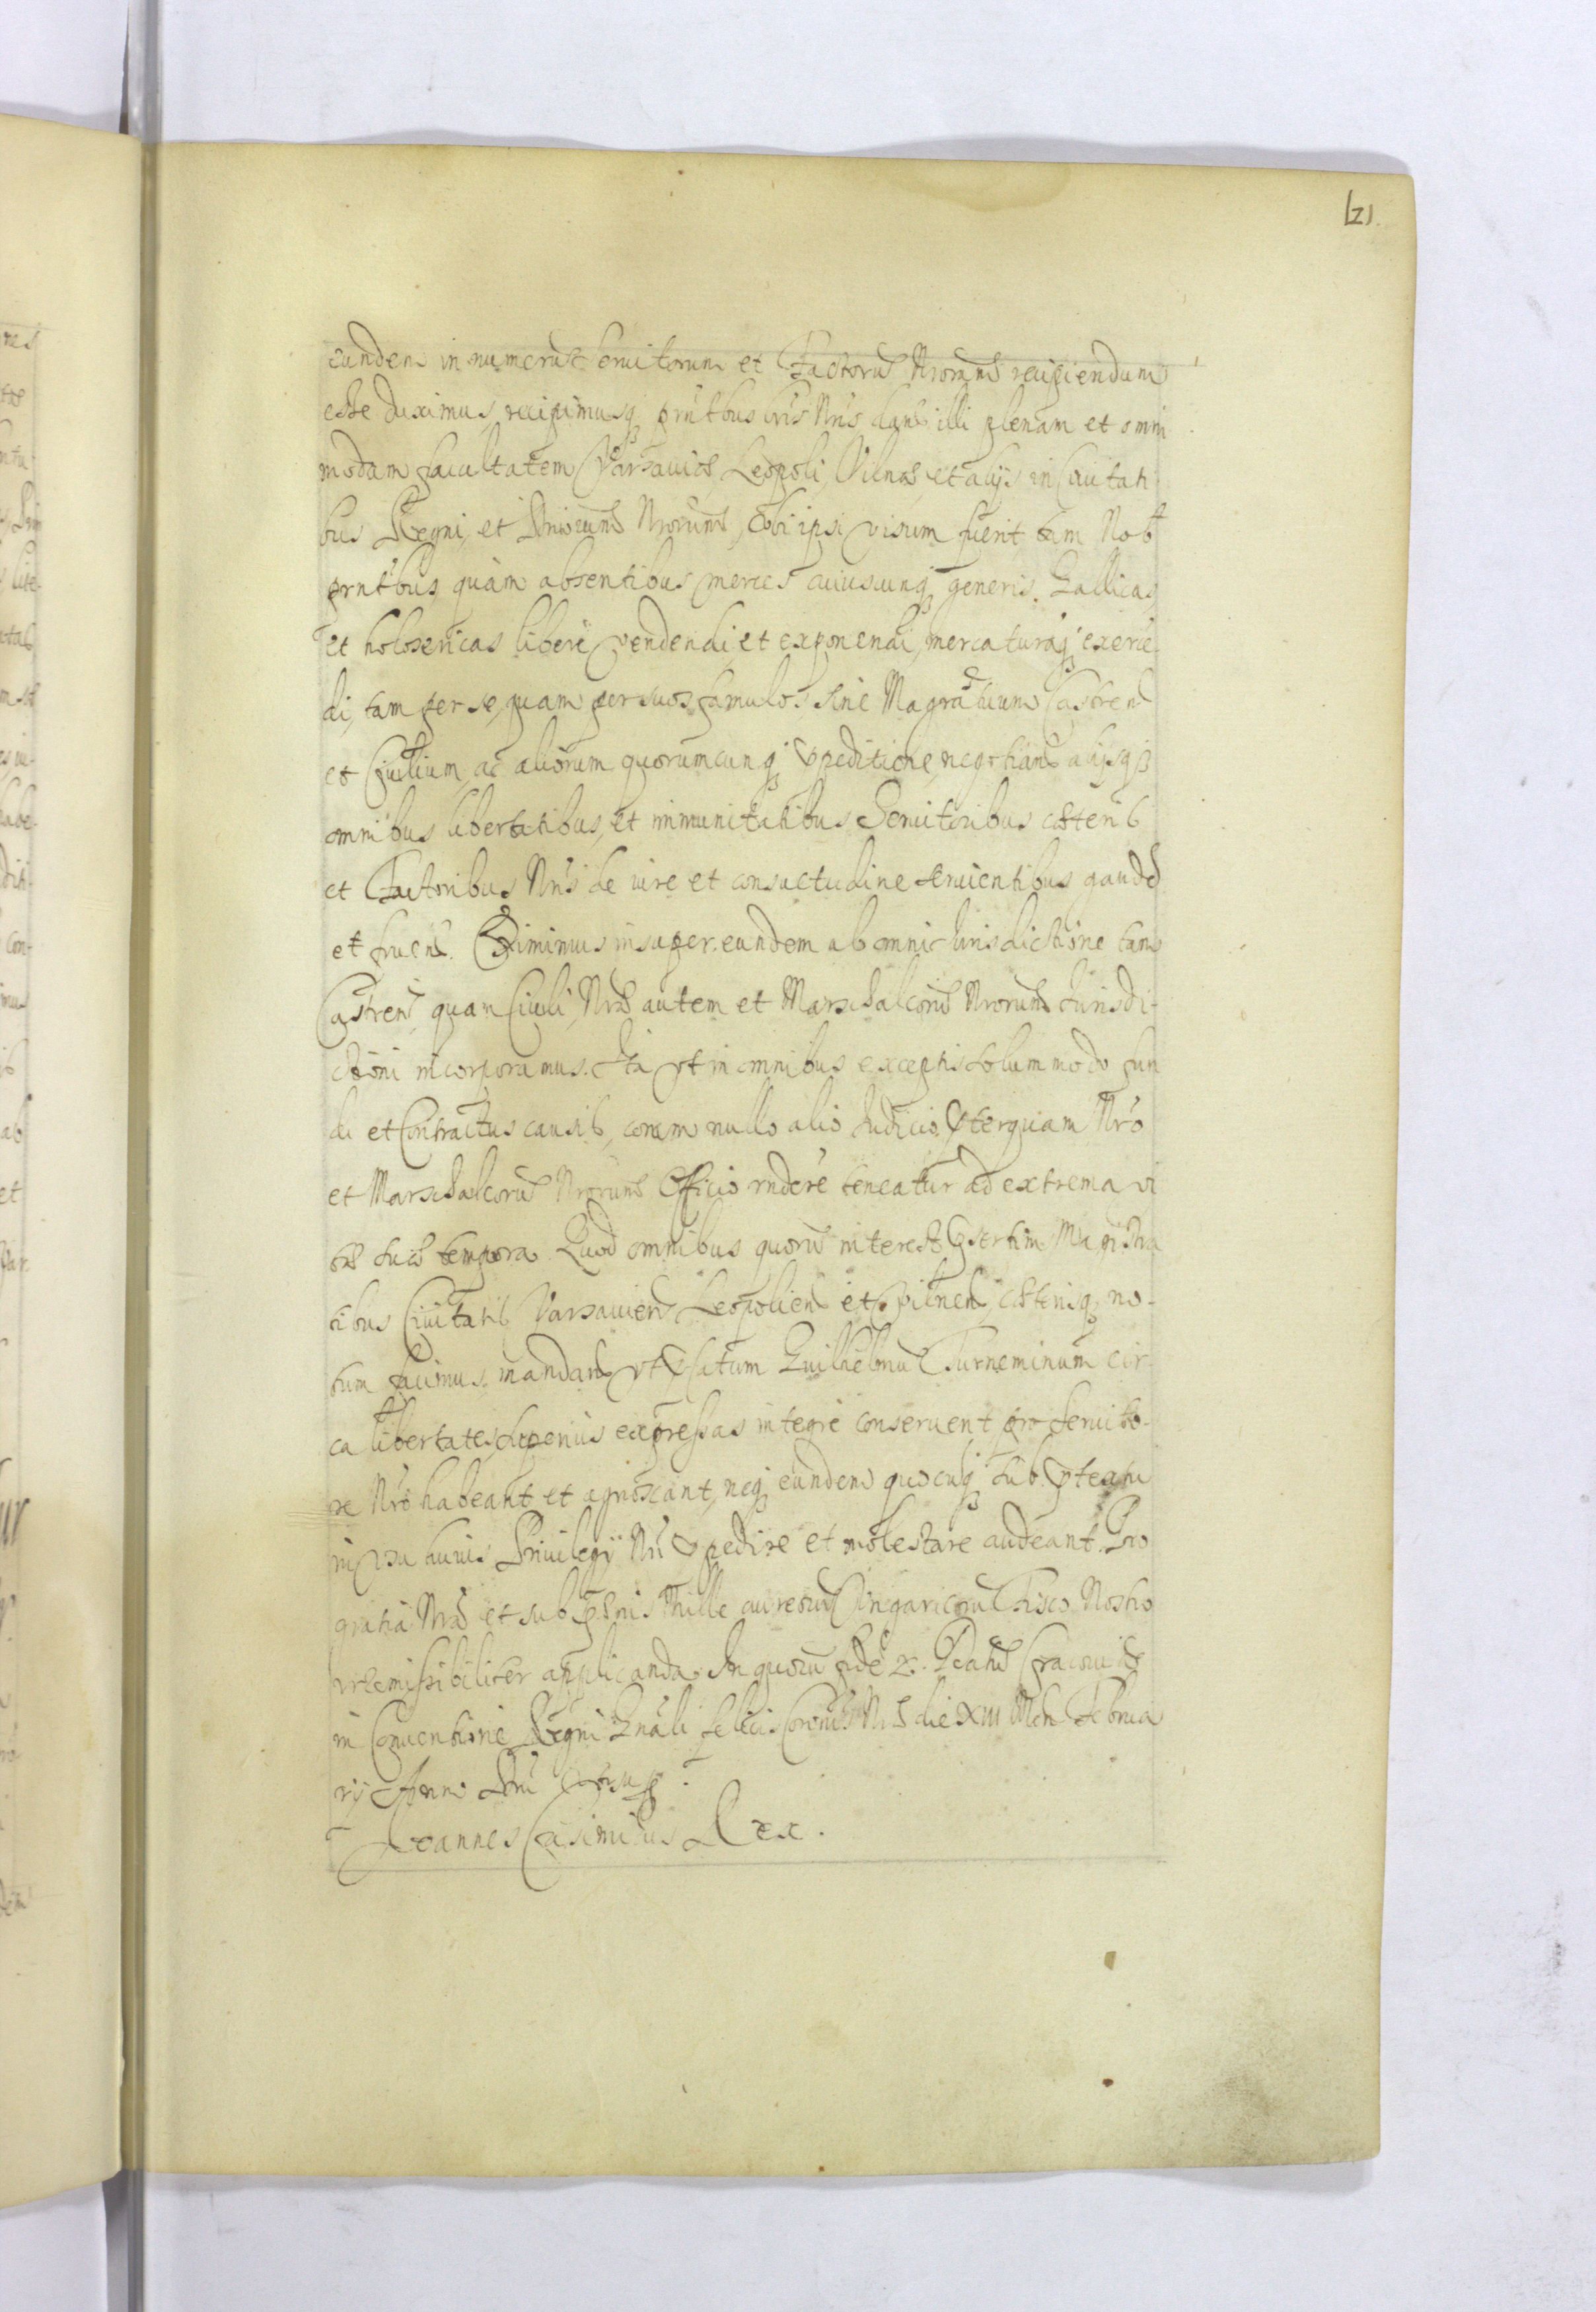 121.
eundem in numerũ Seruitorum et Factorũ Nrorum recipiendum
esse duximus, recipimusq prñtbus lrĩs Nrĩs dans illi plenam et omni
modam facultatem Varsauiæ, Leopoli, Vilnæ, et alijs in Ciuitati
bus Regni, et Dniorum Nrorum, vbi ipsi visum fuerit tam Nob
prñtbus quàm absentibus merces cuiuscunq generis, Gallicas
et holosericas liberè vendendi, et exponendi, mercaturãq exerce
di, tam per se, quam per suos famulos, sine Magratuum Castren
et Ciuilium, ac aliorum quorumcunq Impeditione, negotians alijsq
omnibus libertatibus, et immunitatibus Seruitoribus cæteris
et Factoribus Nrĩs de iure et consuetudine seruientibus gaude
et fruens. Eximimus insuper eundem ab omni Iurisdictione tam
Castren quam Ciuili, Nræ autem et Marschalcorũ Nrorum Iurisdi-
ctioni incorporamus. Ita vt in omnibus exceptis solummodo fun
di et Contractus causis, coram nullo alio Iudicio, Præterquam Nrõ
et Marschalcorũ Nrorum Officio rndere teneatur ad extrema vi
tæ suæ tempora. Quod omnibus quorũ interest Præsertim Magistra
tibus Ciuitatis Varsauien Leopolien et Vilnen, cæterisq no-
tum facimus, mandans vt Præfatum Guilhelmũ Turneminum cir
ca libertates superius expressas integrè conseruent pro Seruito-
re Nrõ habeant et agnoscant, neq eundem quocũq sub Prætextu
in vsu huius Priuilegij Nrĩ Impedire et molestare audeant. Pro
gratia Nrã et sub pænis Mille aureorũ Vngaricorũ Fisco Nostro
irremissibiliter applicanda. In quorũ fidẽ &. Datũ Cracouiæ
in Conuentione Regni Gnãli felicis Coronis Nræ die XIII Men Februa
rij Anno Dni
Ioannes Casimirus Rex.